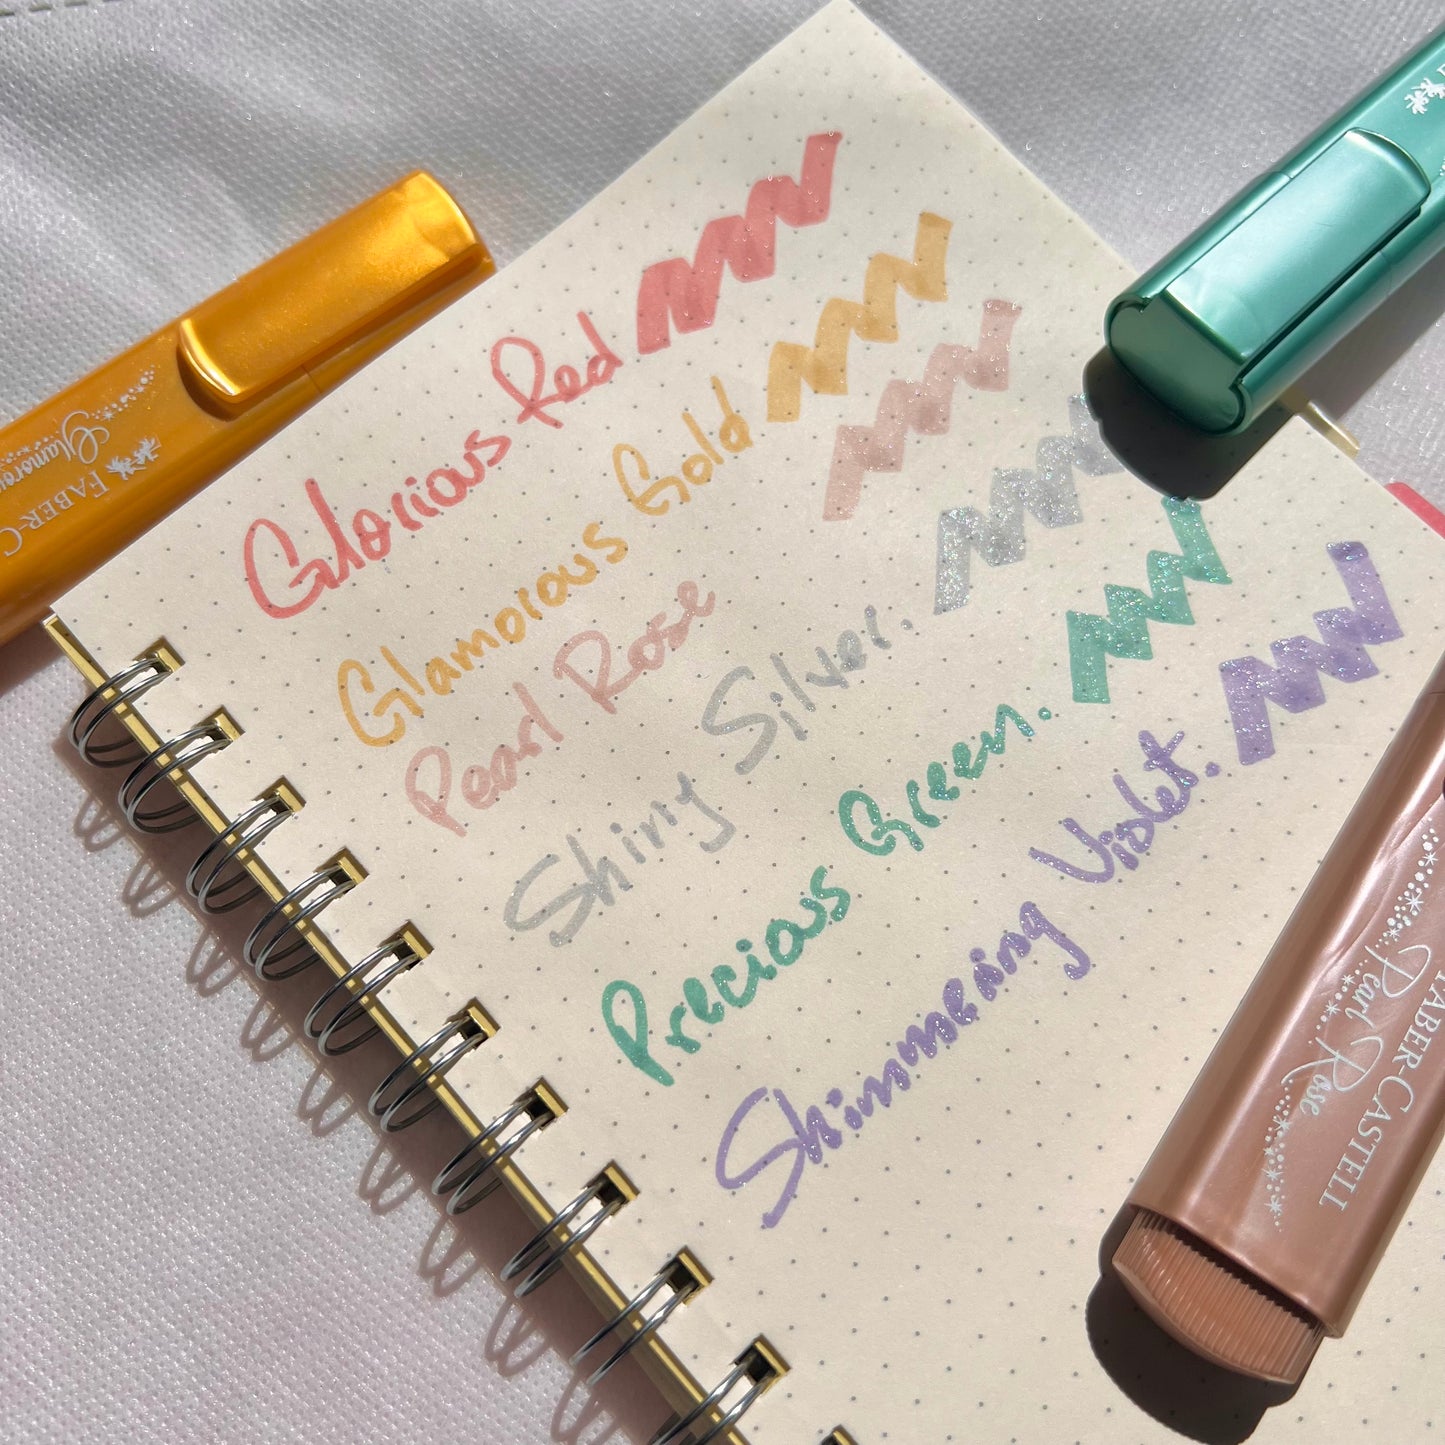 Glorious Red
Glamorous Gold
Pearl Rose
Shiny Silver.
Precious Green.
Shimmering Violet.
FABER-C
Glamorou
FABER-CASTELL
Pearl Rose